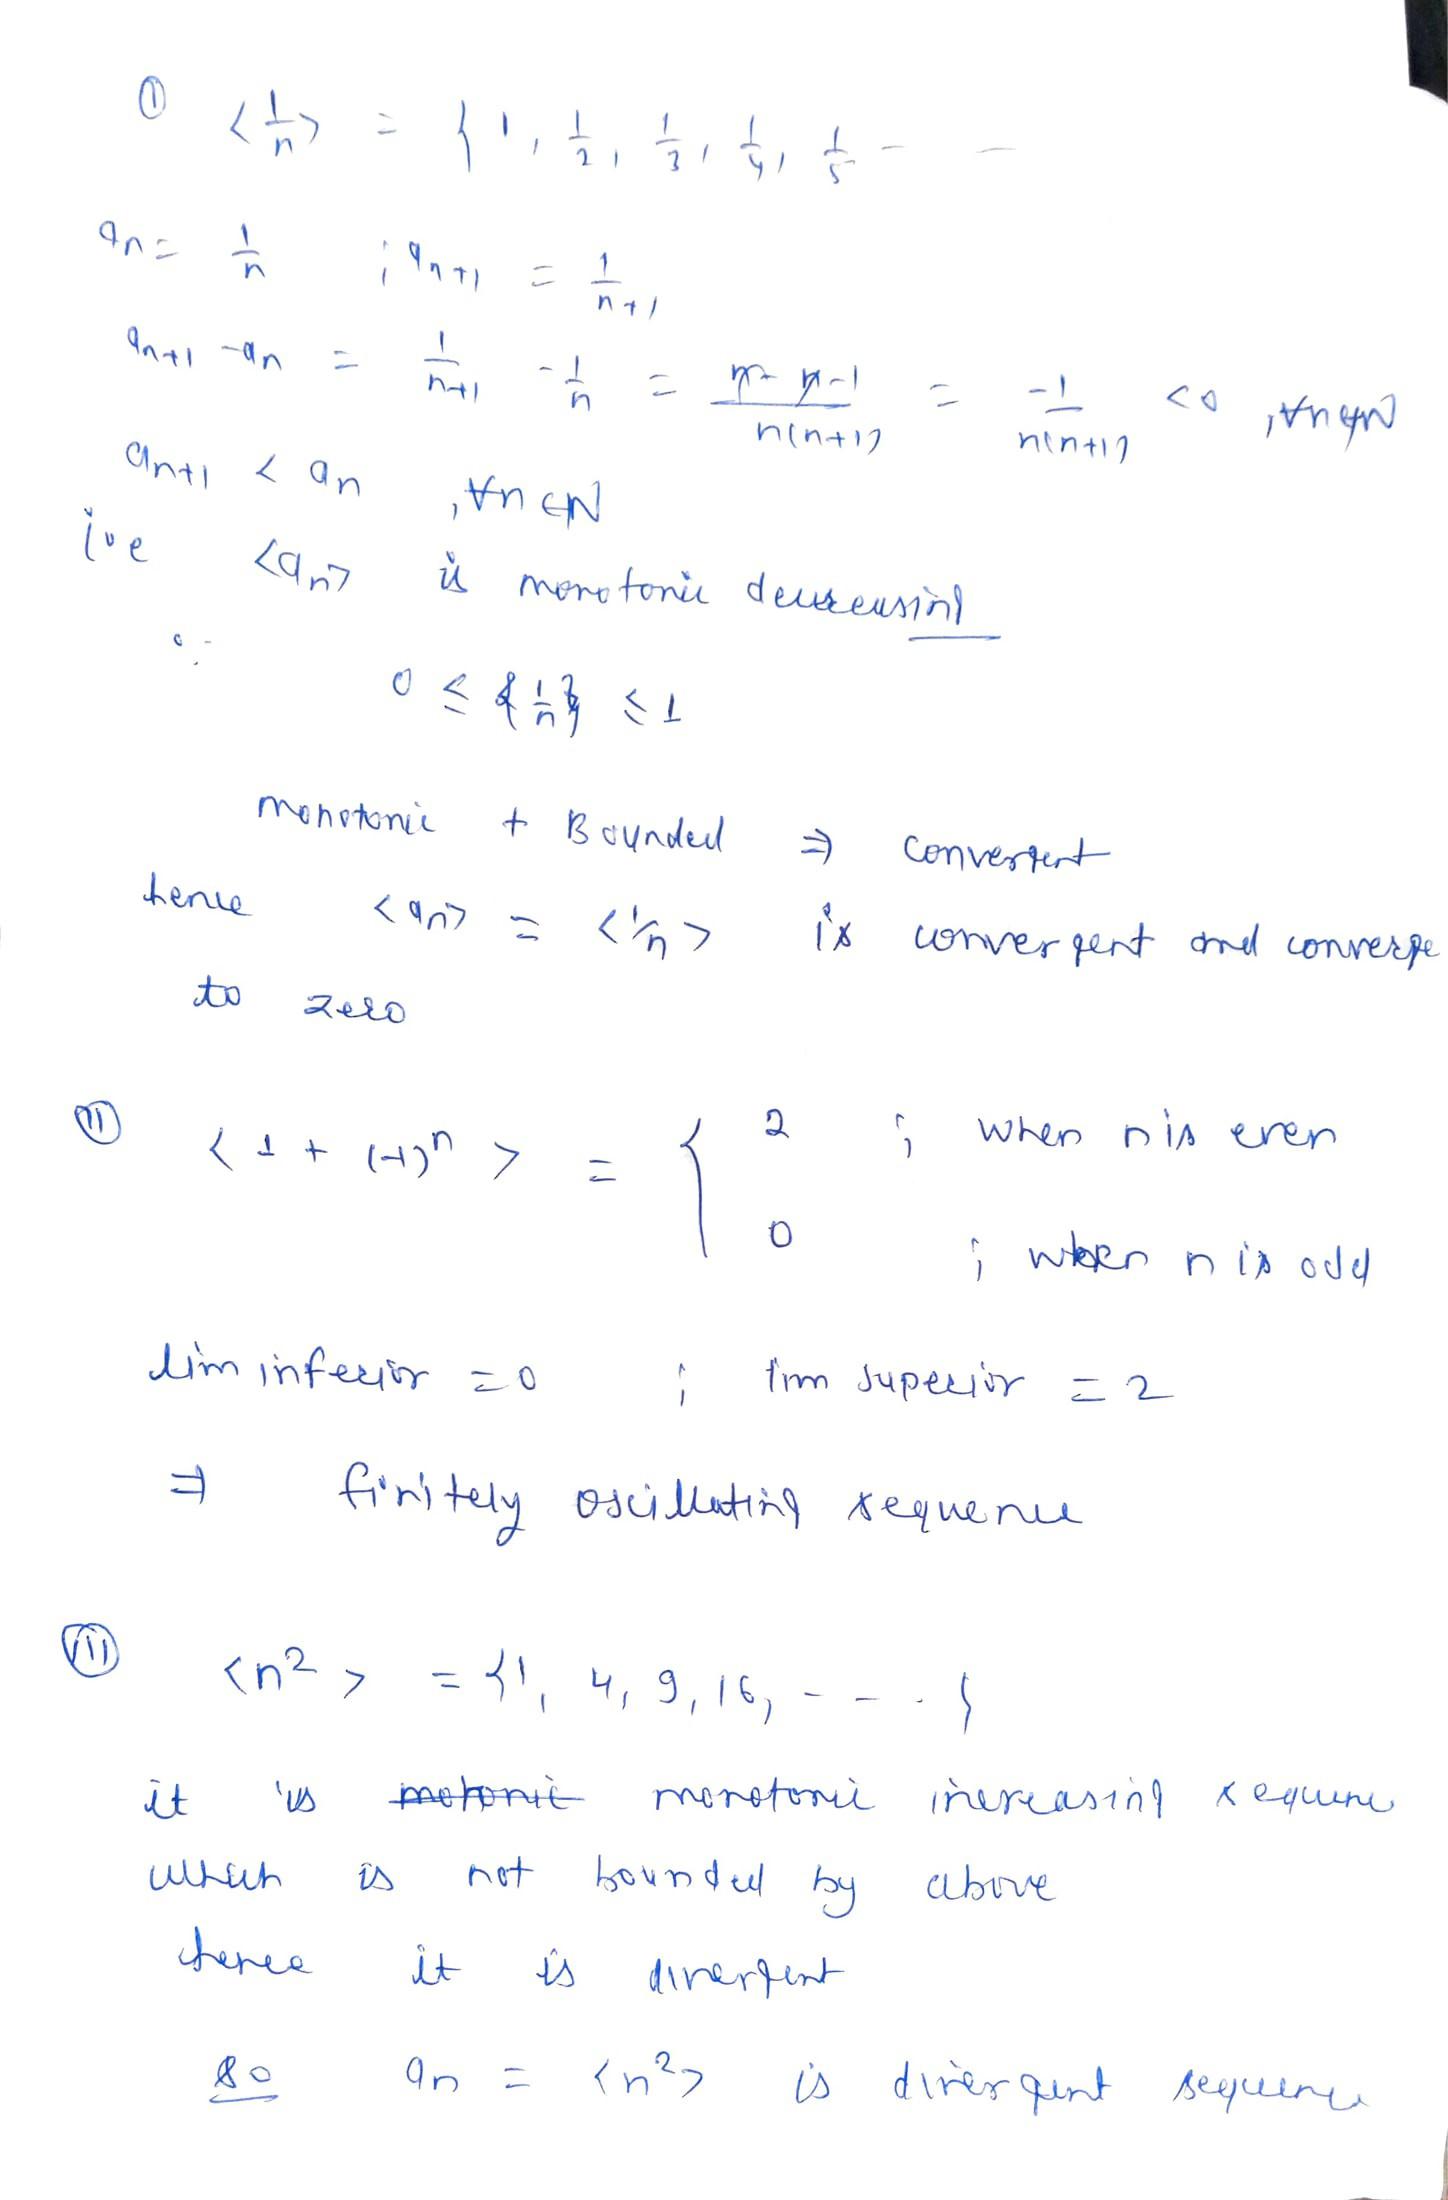 ① <1/n> = { 1, 1/2, 1/3, 1/4, 1/5 - -
an = 1/n ; an+1 = 1/n+1
an+1 - an = 1/n+1 - 1/n = n - n - 1/n(n+1) = -1/n(n+1) < 0 , ∀n∈N
an+1 < an , ∀n∈N
i.e <an> is monotonic decreasing
∵
0 ≤ {1/n} ≤ 1
monotonic + Bounded ⇒ convergent
hence <an> = <1/n> is convergent and converge
to zero
(ii) < 1 + (-1)^n > = { 2 ; when n is even
0 ; when n is odd
lim inferior = 0 ; lim superior = 2
⇒ finitely oscillating sequence
(iii) <n²> = {1, 4, 9, 16, - - - }
it is motonic monotonic increasing sequence
which is not bounded by above
hence it is divergent
so an = <n²> is divergent sequence